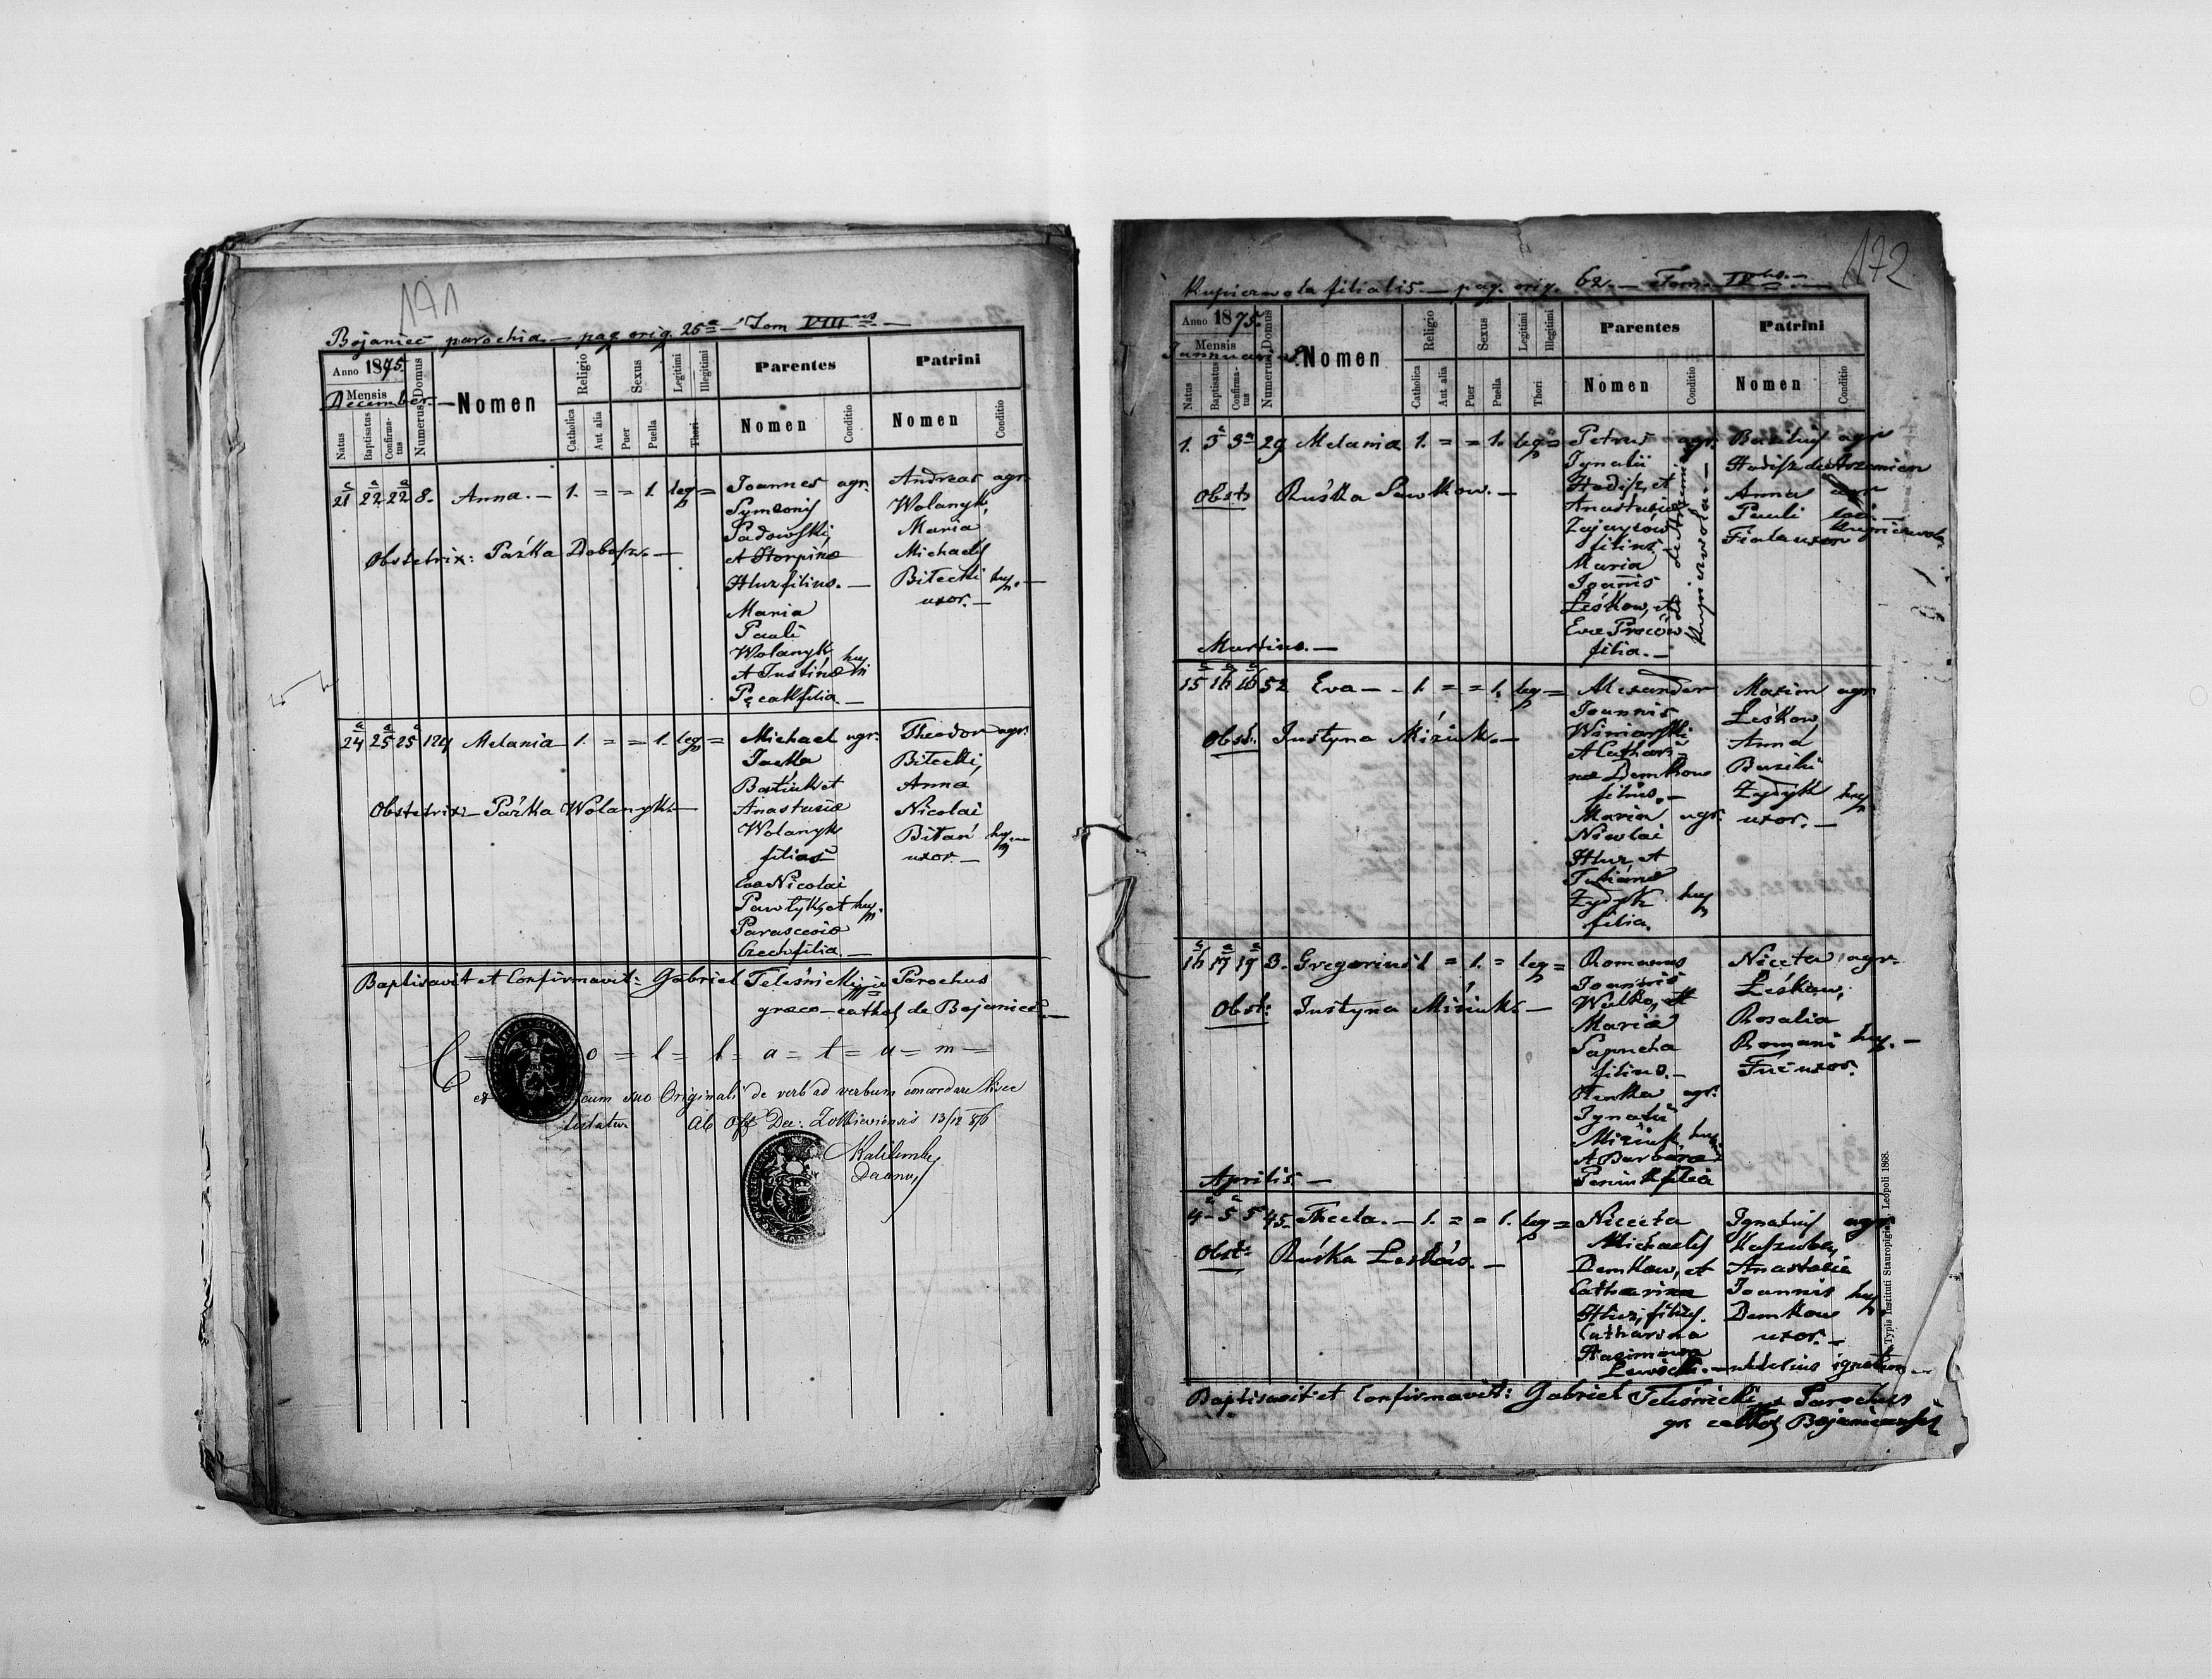 171
Bojaniec parochia. — pag. orig. 26a — Tom VIIIus. —
Anno 1875.
Mensis
December. —
Natus
Baptisatus
Confirma-
tus
Numerus Domus
Nomen
Religio
Catholica
Aut alia
Sexus
Puer
Puella
Legitimi
Illegitimi
Thori
Parentes
Nomen
Conditio
Patrini
Nomen
Conditio
21 22 22 8. Anna. — 1. = = 1. leg =
Obstetrix: Paźka Dobosz. —
Joannes agr.
Symeonis
Sadowski,
et
Hluz filius. —
Maria
Pauli
Wolanyk,
et Justinae huj.
filia. —
Andreas agr.
Wolanyk,
Maria
Michaelis
Bitecki huj. —
uxor. —
24 25 25 124 Melania 1. = = 1. leg =
Obstetrix — Paźka Wolanyk. —
Michael agr.
Jacka
et
Anastasiae
Wolanyk
filius
Eva Nicolai
Pawlyk, et huj.
Parasceviae
Czech filia. —
Theodor agr.
Bitecki,
Anna
Nicolai
Bitań huj. —
uxor —
Baptisavit et Confirmavit: Gabriel Teleśnicki Parochus
graeco-cathol de Bojaniec. —
o = l = l = a = t = u = m =
cum suo Originali de verb ad verbum concordare hisce
testatur Ab Off Dec: Zolkieviensis 13/12 876
Decanus
172
Kupiczwola filialis — pag. orig. 62. — Tom. IVus. —
Anno 1875.
Mensis
Januarius
Natus
Baptisatus
Confirma-
tus
Numerus Domus
Nomen
Religio
Catholica
Aut alia
Sexus
Puer
Puella
Legitimi
Illegitimi
Thori
Parentes
Nomen
Conditio
Patrini
Nomen
Conditio
1. 3 3 29 Melania 1. = = 1. leg =
Obst: Ruśka Sawkow. —
Petrus agr.
Ignatii
Hadisz, et
Anastasiae
filius
Maria
Joannis
Leśkow, et
Evae Proców
filia. —
Kupiczwola —
Basilius agr
Hadisz
Anna
Pauli
Fiala uxor
Kupiczwola
Martius. —
15 16 16 52 Eva — - 1. = = 1. leg =
Obst. Justyna Miziuk. —
Alexander
Joannis
Winiarski
et Cathari-
nae Demkow
filius. —
Maria agr.
Nicolai
Hluz, et
Zydyk huj
filia.
Maxim agr
Leśkow,
Anna
Basilii
Zydyk huj
uxor. —
16 17 17 3. Gregorius 1 = 1. = leg =
Obst: Justyna Miziuk. —
Romanus
Joannis
Walko, et
Mariae
Sapucha
filius. —
agr.
Ignatii
Miziuk, huj.
et Barbarae
filia
Niceta agr.
Leskow,
Rosalia
Romani huj. —
uxor.
Aprilis. —
4 - 5 5 45 Thecla. — 1. = = 1. leg =
Obst: Ruśka Leskow. —
Niceta
Michaelis
Demkow, et
Catharinae
Hluz, filius.
Catharina
Ignatius agr.
Anastasia
Joannis huj.
Demkow
uxor. —
Baptisavit et Confirmavit: Gabriel Teleśnicki Parochus
gr. cathol Bojanicensis
Typis Instituti Stauropigiani, Leopoli 1868.